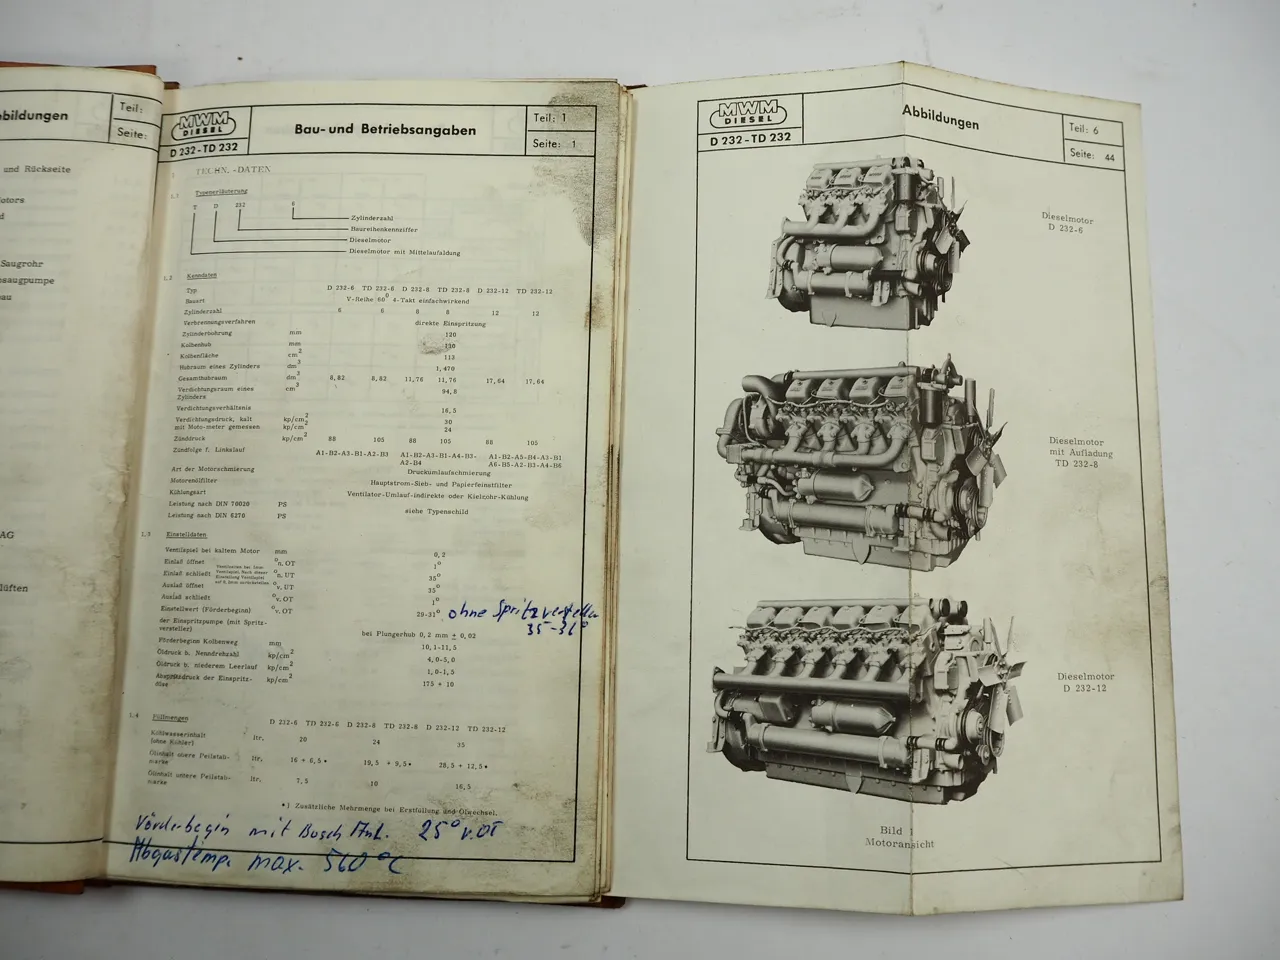 bbildungen
Teil:
Seite:
und Rückseite
otors
d
Saugrohr
nsaugpumpe
au
AG
lüften
MWM
DIESEL
D 232-TD 232
Bau- und Betriebsangaben
Teil: 1
Seite: 1
1 TECHN. -DATEN
1.1 Typenerläuterung
T D 232 6
Zylinderzahl
Baureihenkennziffer
Dieselmotor
Dieselmotor mit Mittelaufladung
1.2 Kenndaten
Typ D 232-6 TD 232-6 D 232-8 TD 232-8 D 232-12 TD 232-12
Bauart V-Reihe 60° 4-Takt einfachwirkend
Zylinderzahl 6 6 8 8 12 12
Verbrennungsverfahren direkte Einspritzung
Zylinderbohrung mm 120
Kolbenhub mm 130
Kolbenfläche cm² 113
Hubraum eines Zylinders dm³ 1,470
Gesamthubraum dm³ 8,82 8,82 11,76 11,76 17,64 17,64
Verdichtungsraum eines Zylinders cm³ 94,8
Verdichtungsverhältnis 16,5
Verdichtungsdruck, kalt kp/cm² 30
mit Moto-meter gemessen kp/cm² 24
Zünddruck kp/cm² 88 105 88 105 88 105
Zündfolge f. Linkslauf A1-B2-A3-B1-A2-B3 A1-B2-A3-B1-A4-B3- A1-B2-A5-B4-A3-B1
A2-B4 A6-B5-A2-B3-A4-B6
Art der Motorschmierung Druckumlaufschmierung
Motorenölfilter Hauptstrom-Sieb- und Papierfeinstfilter
Kühlungsart Ventilator-Umlauf-indirekte oder Kielrohr-Kühlung
Leistung nach DIN 70020 PS
siehe Typenschild
Leistung nach DIN 6270 PS
1.3 Einstelldaten
Ventilspiel bei kaltem Motor mm 0,2
Einlaß öffnet °n. OT 1°
Einlaß schließt °n. UT 35°
Auslaß öffnet °v. UT 35°
Auslaß schließt °v. OT 1°
Einstellwert (Förderbeginn) °v. OT 29-31° ohne Spritzversteller
35-31°
der Einspritzpumpe (mit Spritz-
versteller)
bei Plungerhub 0,2 mm ± 0,02
Förderbeginn Kolbenweg mm 10,1-11,5
Öldruck b. Nenndrehzahl kp/cm² 4,0-5,0
Öldruck b. niederem Leerlauf kp/cm² 1,0-1,5
Abspritzdruck der Einspritz-
düse kp/cm² 175 + 10
1.4 Füllmengen
D 232-6 TD 232-6 D 232-8 TD 232-8 D 232-12 TD 232-12
Kühlwasserinhalt
(ohne Kühler) ltr. 20 24 35
Ölinhalt obere Peilstab-
marke ltr. 16 + 6,5 • 19,5 + 9,5 • 28,5 + 12,5 •
Ölinhalt untere Peilstab-
marke ltr. 7,5 10 16,5
•) Zusätzliche Mehrmenge bei Erstfüllung und Ölwechsel.
Vörderbegin mit Bosch Anl. 25° v. OT
Abgastemp. max. 560 °C
MWM
DIESEL
D 232-TD 232
Abbildungen
Teil: 6
Seite: 44
Dieselmotor
D 232-6
Dieselmotor
mit Aufladung
TD 232-8
Dieselmotor
D 232-12
Bild 1
Motoransicht